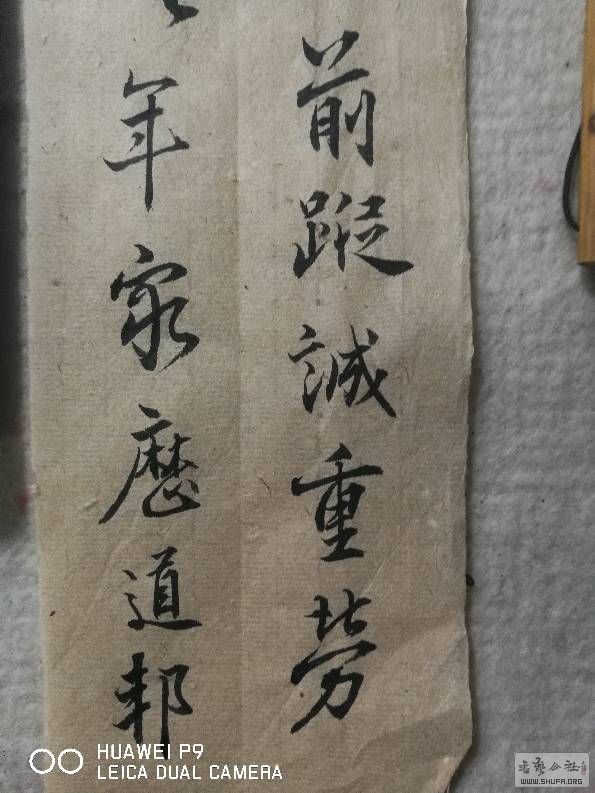 前蹤誠重勞
年家歷道
HUAWEI P9
LEICA DUAL CAMERA
书艺公社
WWW.SHUFA.ORG